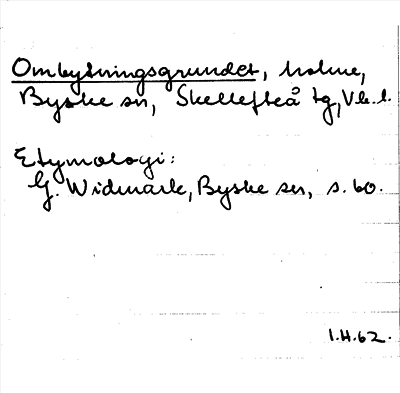 Ombytningsgrundet, holme,
Byske sn, Skellefteå tg, Vb.l.
Etymologi:
G. Widmark, Byske sn, s. 60.
I.H.62.